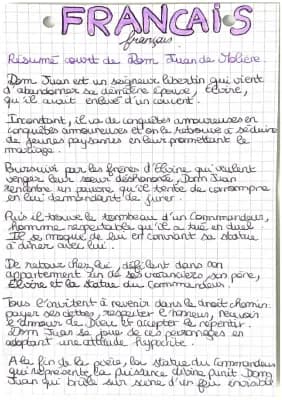 FRANCAIS
français.
Résumé court de Dom Juan de Molière.
Dom Juan est un seigneur libertin qui vient
d'abandonner sa dernière épouse, Elvire,
qu'il avait enlevé d'un couvent.
Inconstant, il va de conquêtes amoureuses en
conquêtes amoureuses et on le retrouve à séduire
de jeunes paysannes en leur promettant le
mariage.
Poursuivi par les frères d'Elvire qui veulent
venger leur sœur déshonorée, Dom Juan
rencontre un pauvre qu'il tente de corrompre
en lui demandant de jurer.
Puis il trouve le tombeau d'un Commandeur,
homme respectable qu'il a tué en duel.
Il se moque de lui en conviant sa statue
à dîner avec lui.
De retour chez lui, défilent dans son
appartement un de ses créanciers, son père,
Elvire et la statue du Commandeur.
Tous l'invitent à revenir dans le droit chemin:
payer ses dettes, respecter l'honneur,
l'amour de Dieu et accepter le repentir.
Dom Juan se joue de ces personnages en
adoptant une attitude hypocrite.
A la fin de la pièce, la statue du Commandeur
qui représente la puissance divine punit Dom
Juan qui brûle sur scène d'un feu invisible